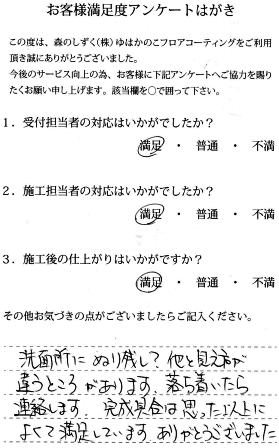 お客様満足度アンケートはがき
この度は、森のしずく(株)ゆはかのこフロアコーティングをご利用
頂き誠にありがとうございました。
今後のサービス向上の為、お客様に下記アンケートへご協力を賜り
たくお願い申し上げます。該当欄を○で囲って下さい。
1．受付担当者の対応はいかがでしたか？
満足 ・ 普通 ・ 不満
2．施工担当者の対応はいかがでしたか？
満足 ・ 普通 ・ 不満
3．施工後の仕上がりはいかがですか？
満足 ・ 普通 ・ 不満
その他お気づきの点がございましたらご記入ください。
洗面所に ぬり残しで 他と見え方が
違うところがあります。落ち着いたら
連絡します。完成具合は思った以上に
よくて満足しています。ありがとうございました